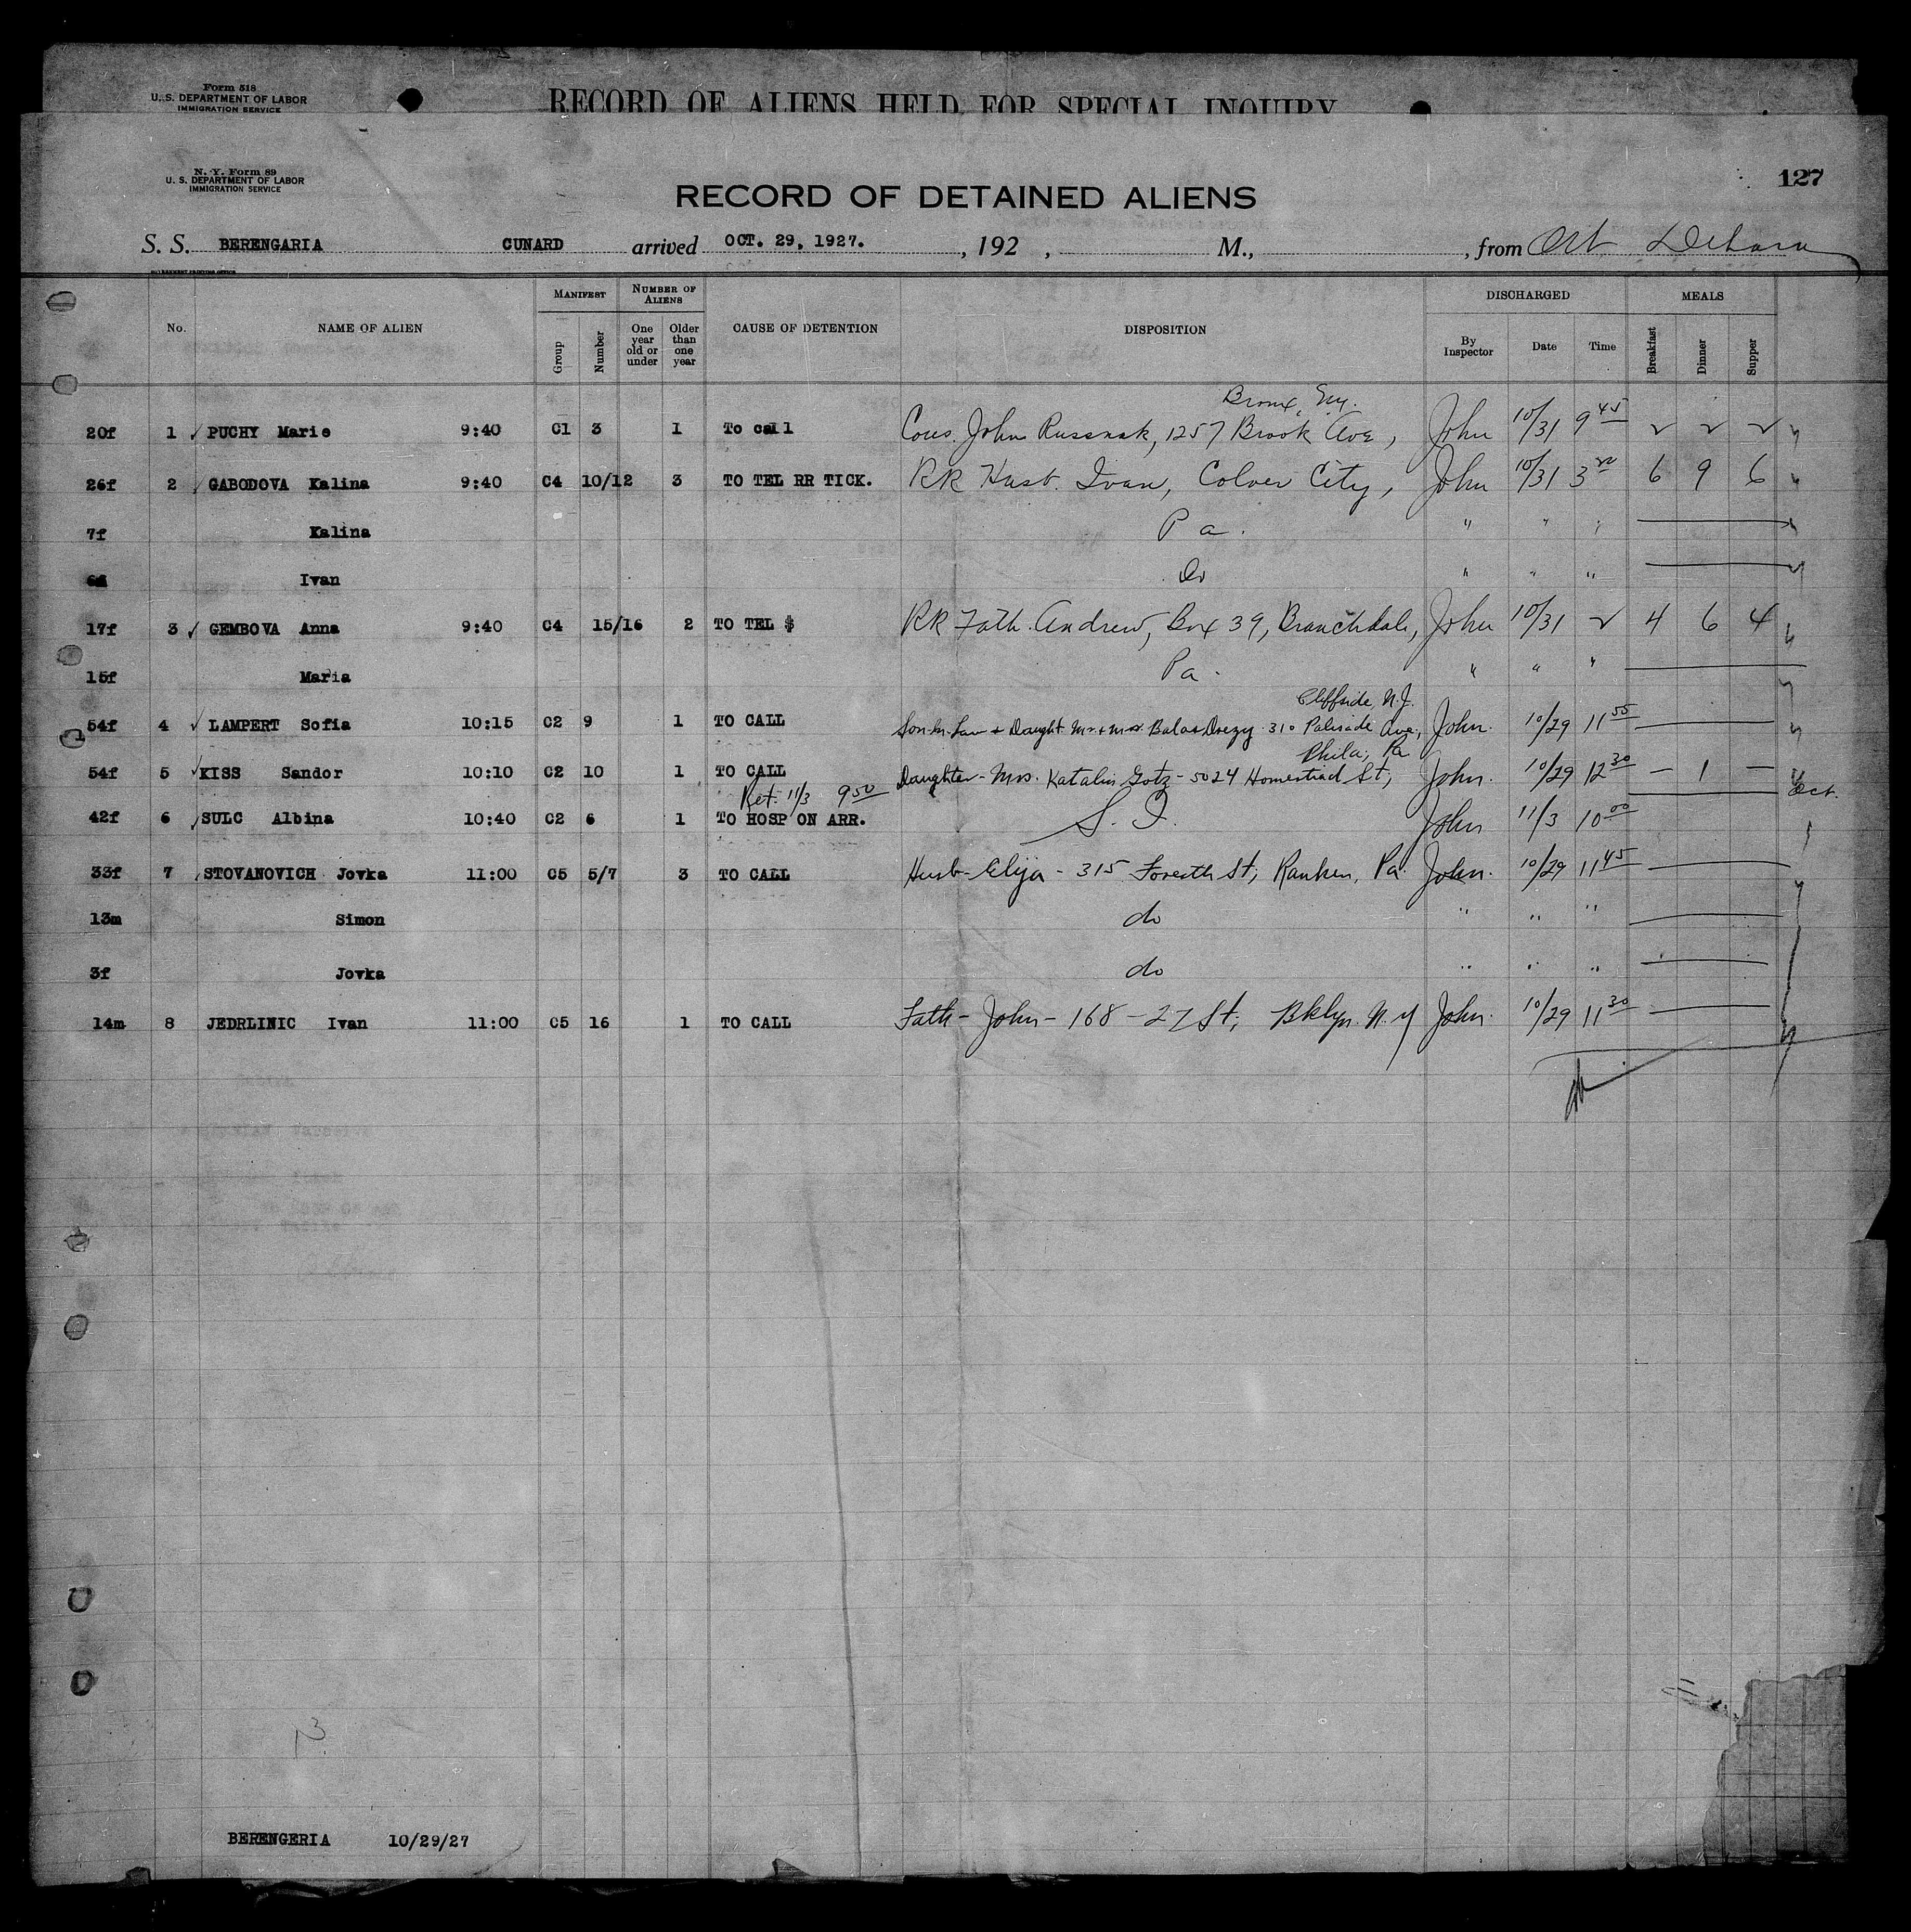 Form 518
U. S. DEPARTMENT OF LABOR
IMMIGRATION SERVICE
RECORD OF ALIENS HELD FOR SPECIAL INQUIRY
N. Y. Form 89
U. S. DEPARTMENT OF LABOR
IMMIGRATION SERVICE
127
RECORD OF DETAINED ALIENS
S. S. BERENGARIA CUNARD arrived OCT. 29, 1927. , 192 , M., , from
GOVERNMENT PRINTING OFFICE
No. NAME OF ALIEN MANIFEST Group Number NUMBER OF ALIENS One year old or under Older than one year CAUSE OF DETENTION DISPOSITION DISCHARGED By Inspector Date Time MEALS Breakfast Dinner Supper
Bronx, Ny.
20f 1 ✓ PUCHY Marie 9:40 C1 3 1 To call Cous. John Russnak, 1257 Brook Ave, John 10/31 9 45 ✓ ✓ ✓
26f 2 ✓ GABODOVA Kalina 9:40 C4 10/12 3 TO TEL RR TICK. RR Husb. Ivan, Colver City, John 10/31 3 6 9 6
7f Kalina Pa. " " "
Ivan Do " " "
17f 3 ✓ GEMBOVA Anna 9:40 C4 15/16 2 TO TEL $ RR Fath. Andrew, Box 39, Branchdale, John 10/31 ✓ 4 6 4
15f Maria Pa. " " "
Cliffside, N.J.
54f 4 ✓ LAMPERT Sofia 10:15 C2 9 1 TO CALL Son-in-Law + Daught Mr + Mrs 310 Palisade Ave, John. 10/29 11 55
Phila, Pa
54f 5 ✓ KISS Sandor 10:10 C2 10 1 TO CALL Daughter - Mrs. Katalin Gotz - 5024 Homestead St, John. 10/29 12 30 — 1 —
Ret. 11/3 9 50 Oct.
42f 6 ✓ SULC Albina 10:40 C2 6 1 TO HOSP ON ARR. S. I. John 11/3 10 00
33f 7 STOVANOVICH Jovka 11:00 C5 5/7 3 TO CALL Husb - Elija - 315 St, Ranken, Pa. John. 10/29 11 45
13m Simon do " " "
3f Jovka do " " "
14m 8 JEDRLINIC Ivan 11:00 C5 16 1 TO CALL Fath - John - 168 - 27 St, Bklyn. N.Y John. 10/29 11 30
BERENGERIA 10/29/27